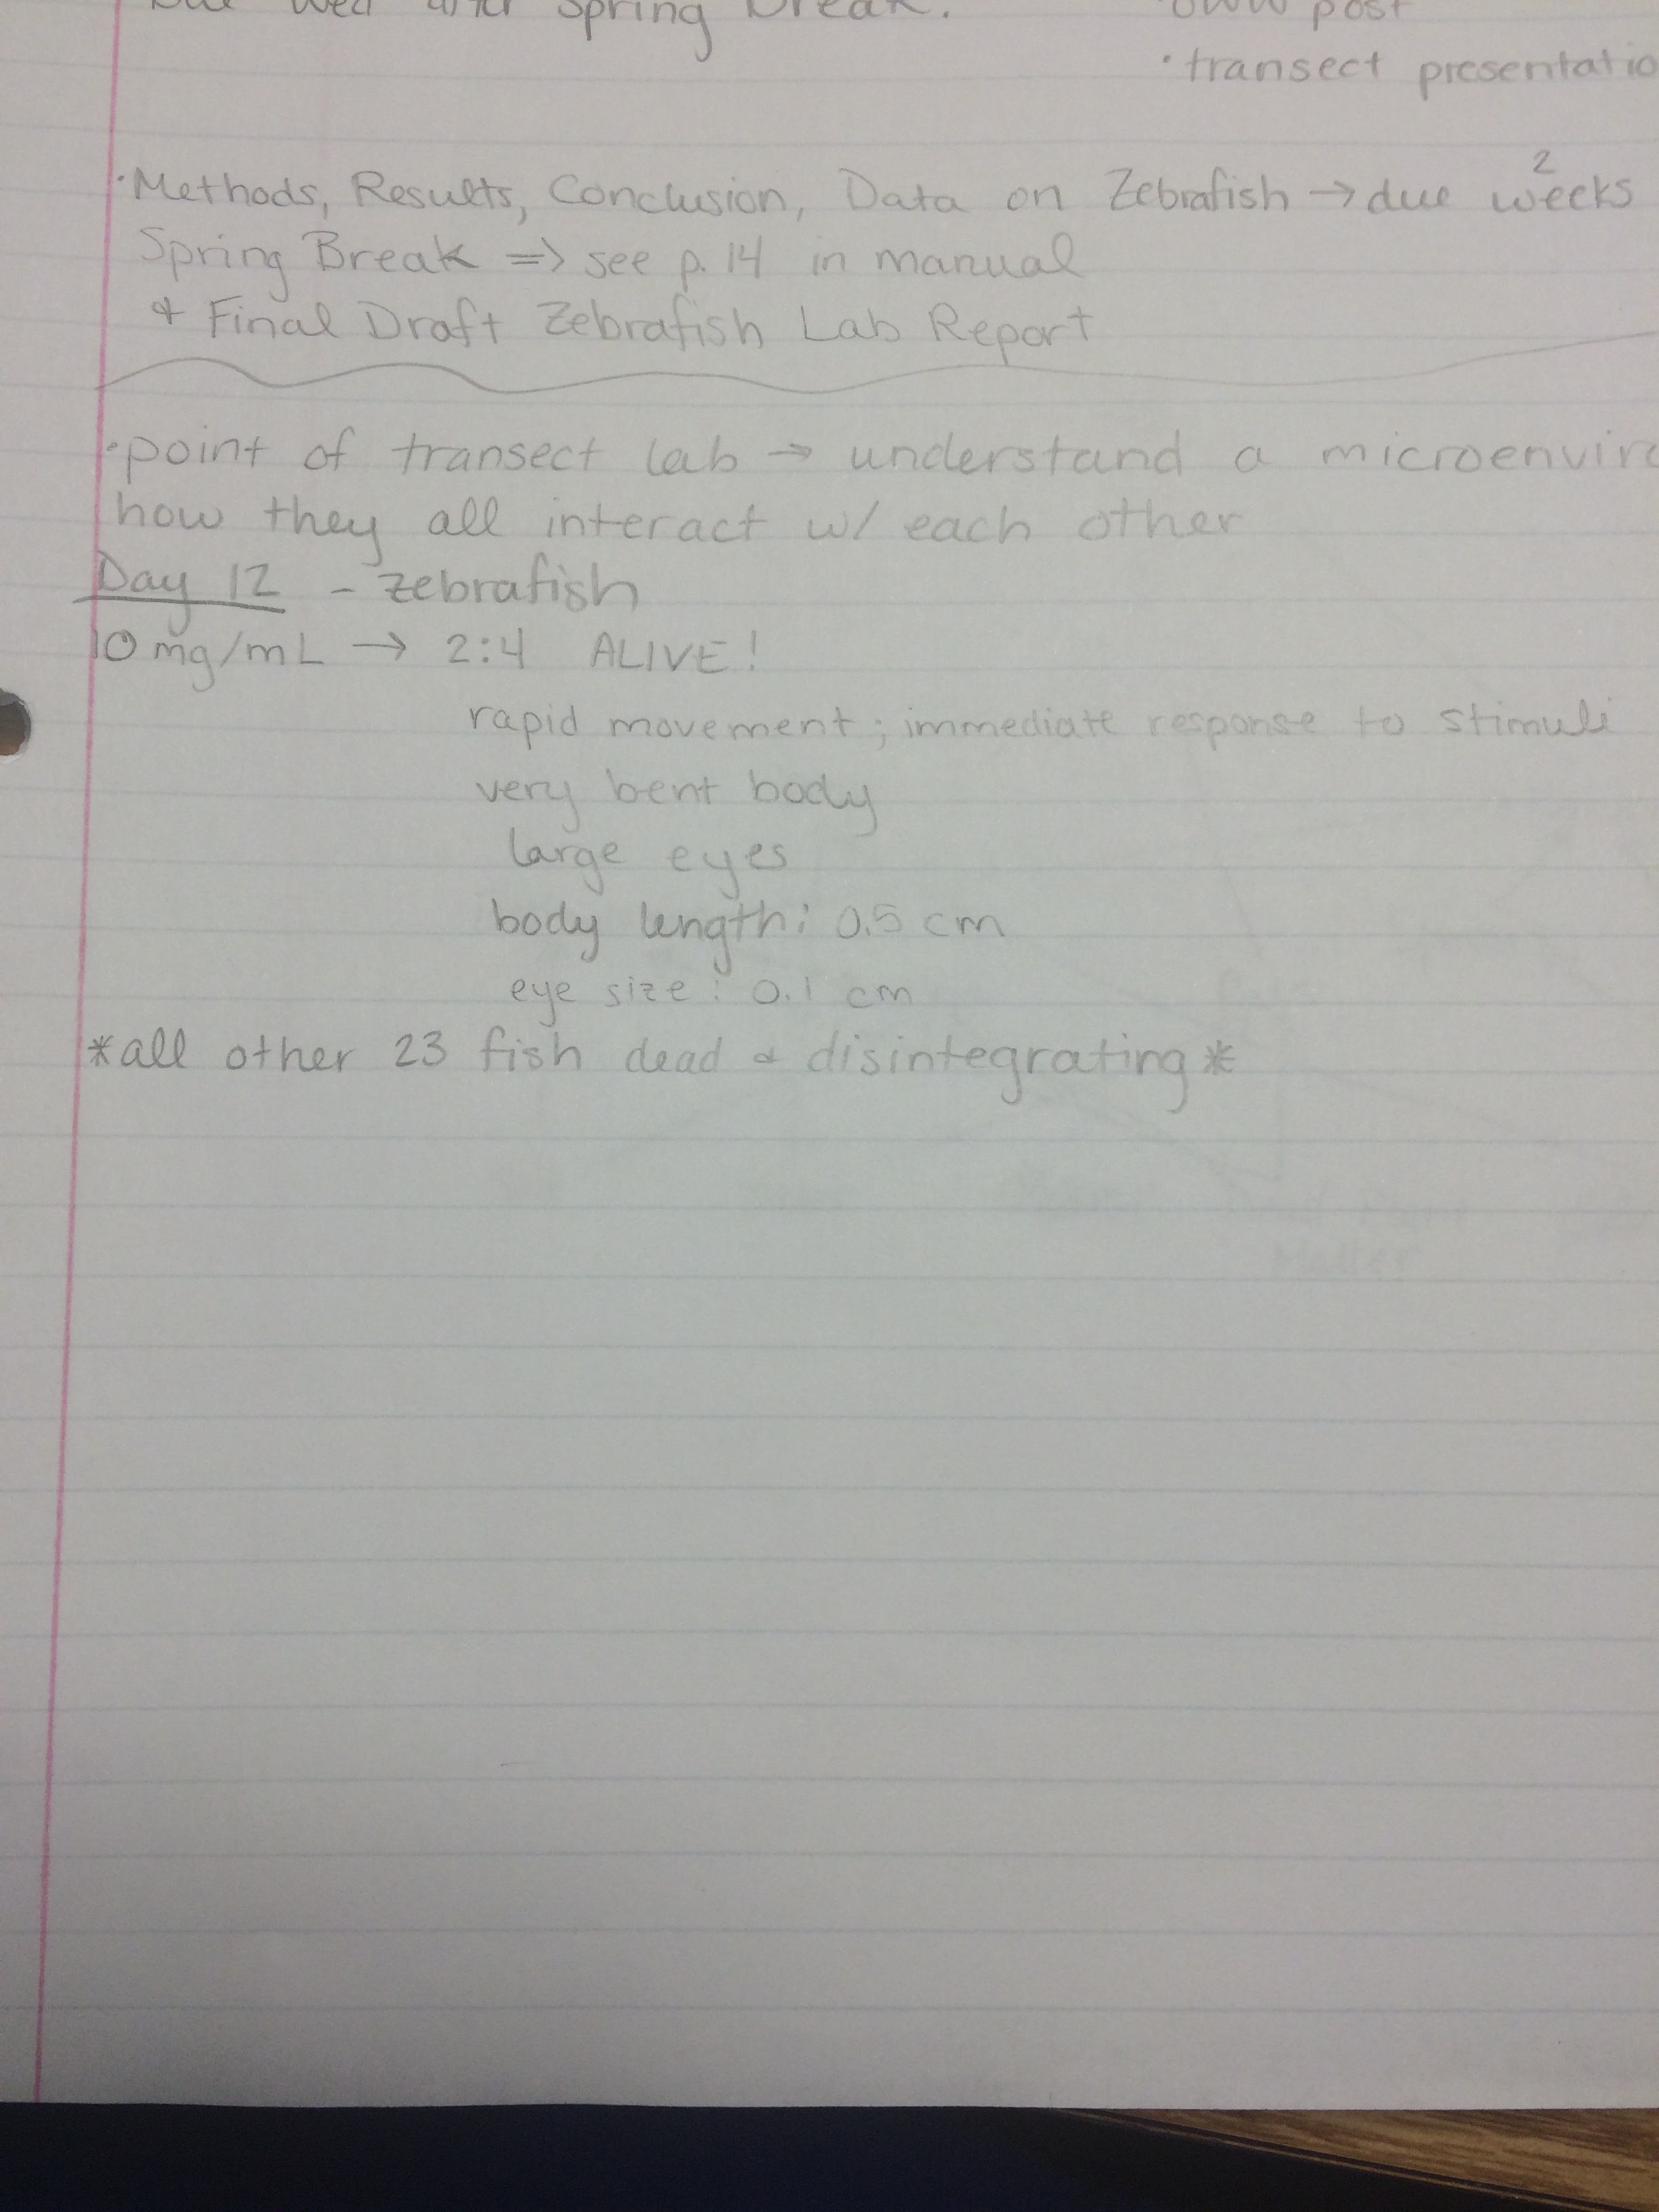 Due Wed after Spring Break.
post
· transect presentatio
· Methods, Results, Conclusion, Data on Zebrafish → due 2 weeks
Spring Break => see p. 14 in manual
& Final Draft Zebrafish Lab Report
· point of transect lab → understand a microenviro
how they all interact w/ each other
Day 12 - zebrafish
10 mg/mL → 2:4 ALIVE!
rapid movement; immediate response to stimuli
very bent body
large eyes
body length: 0.5 cm
eye size: 0.1 cm
*all other 23 fish dead & disintegrating*